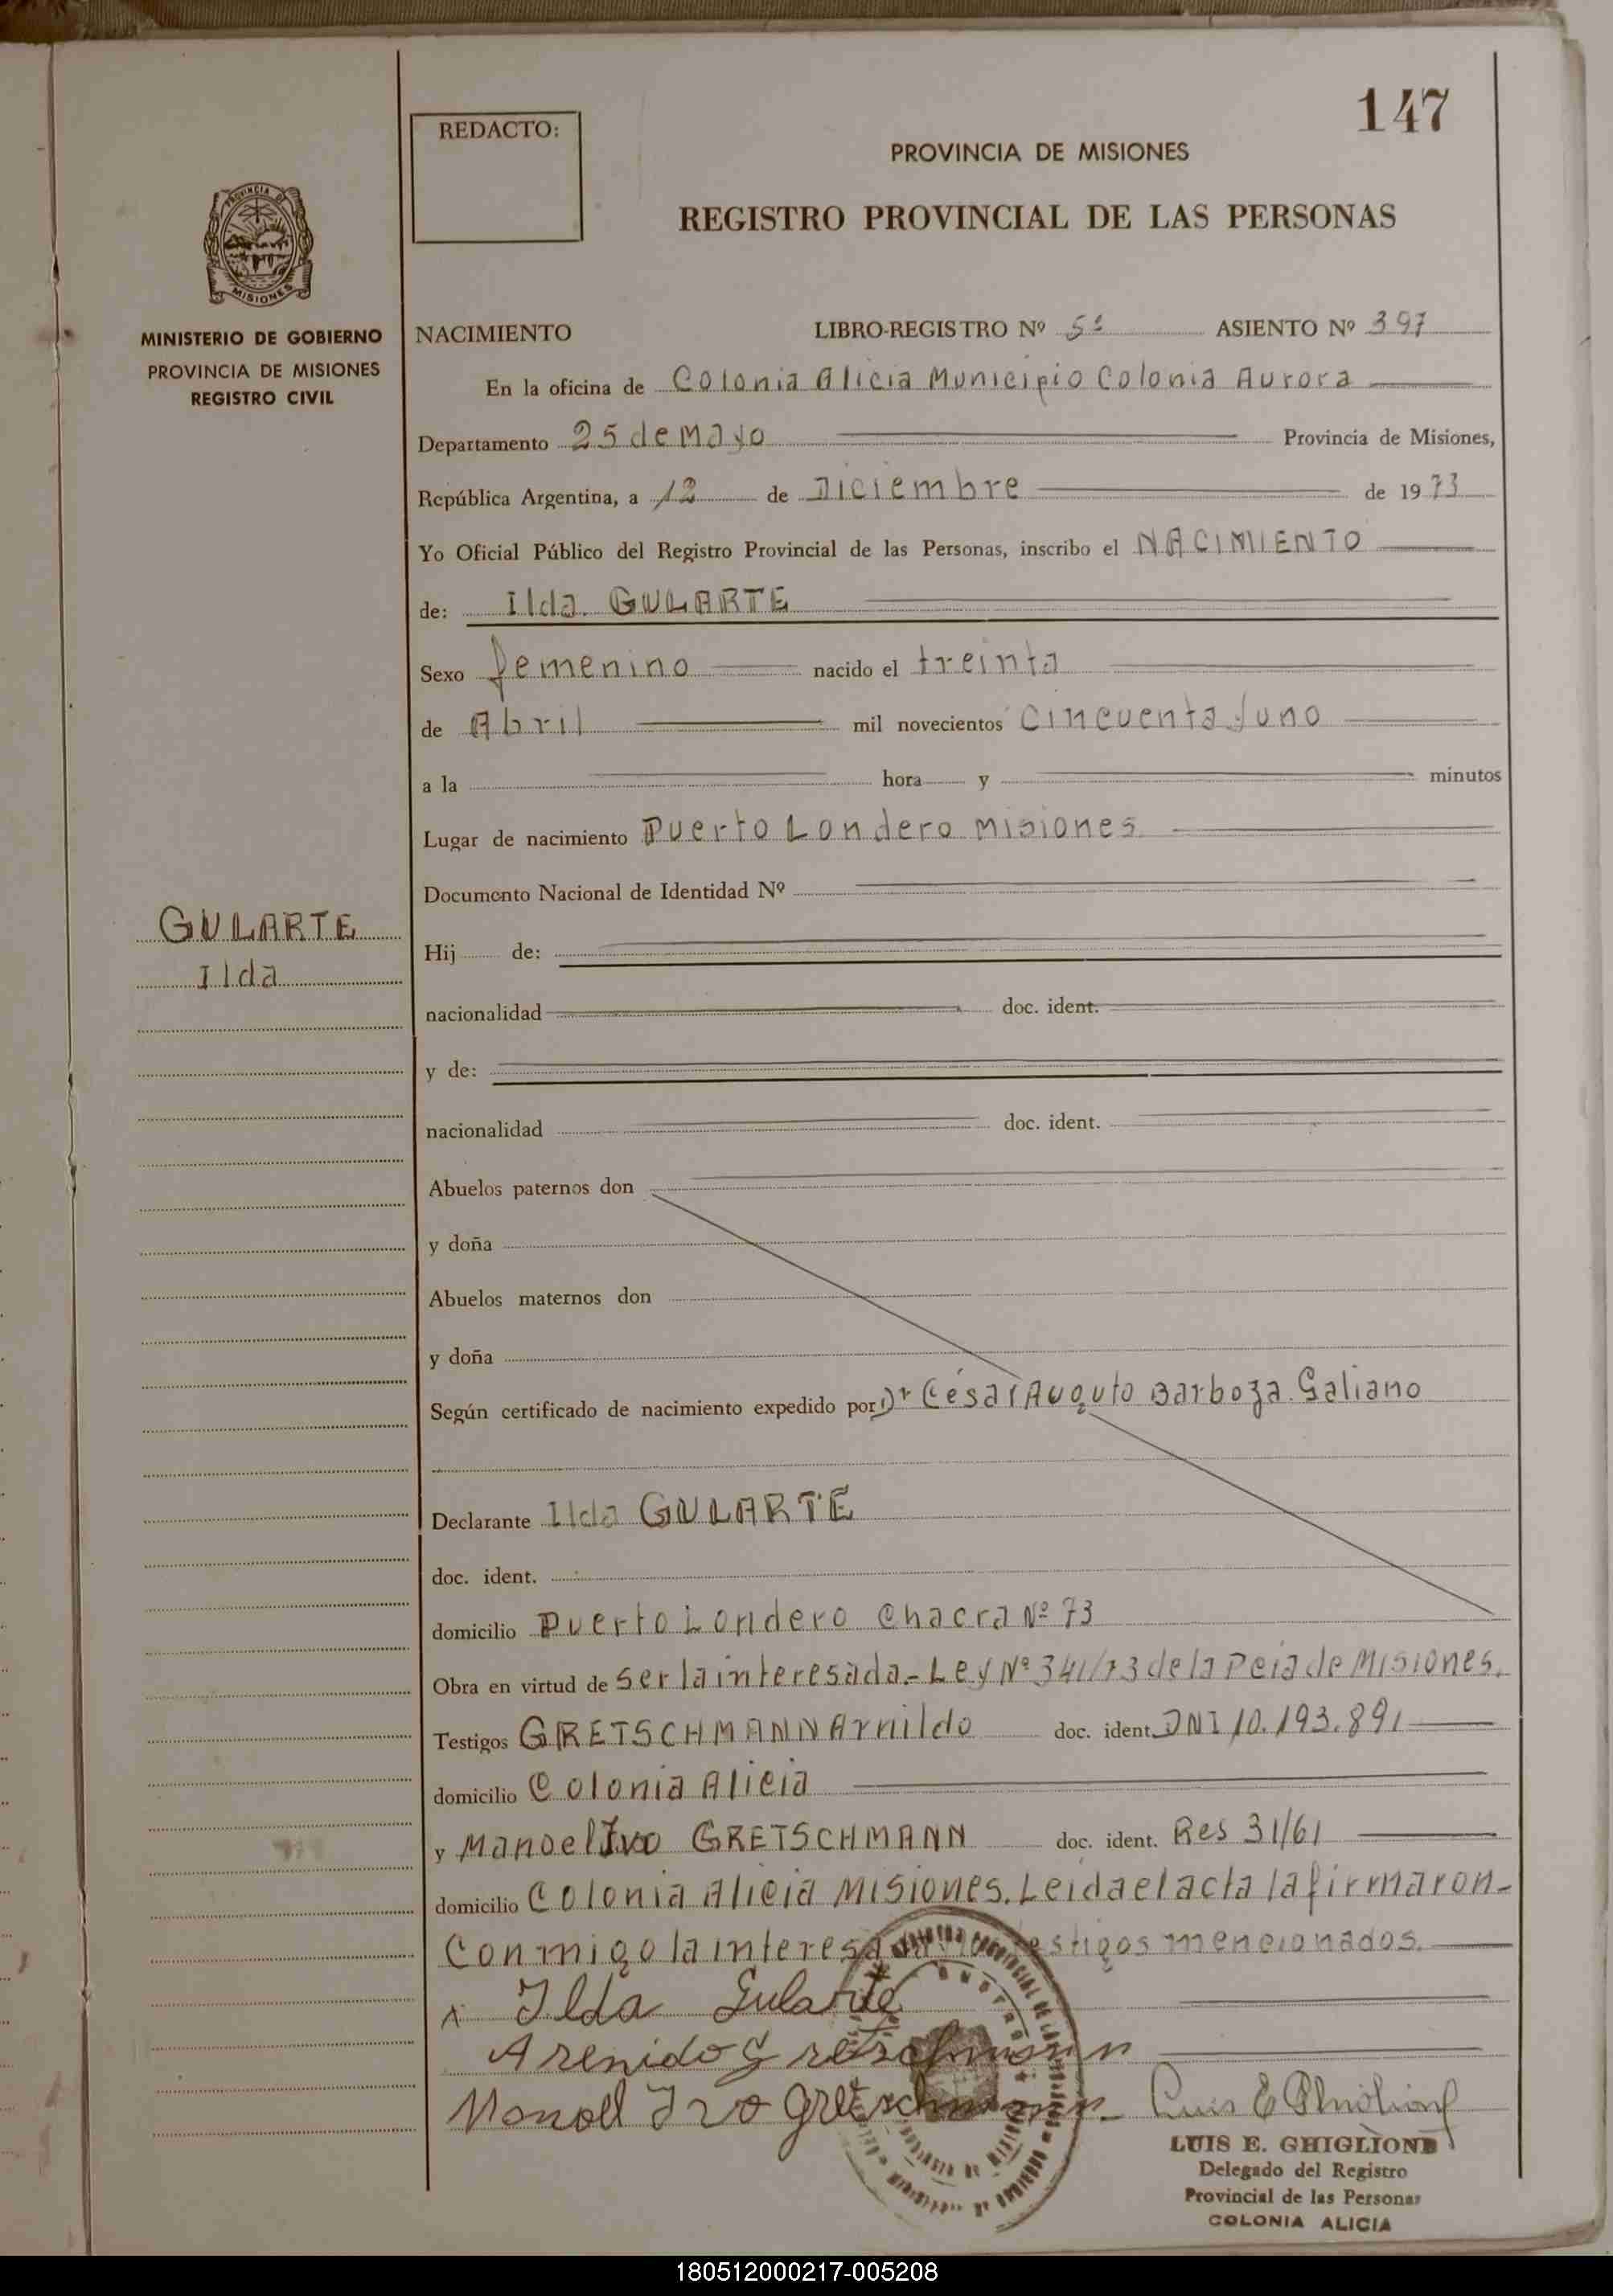 147
REDACTO:
PROVINCIA DE MISIONES
REGISTRO PROVINCIAL DE LAS PERSONAS
PROVINCIA DE
MISIONES
MINISTERIO DE GOBIERNO
PROVINCIA DE MISIONES
REGISTRO CIVIL
NACIMIENTO LIBRO-REGISTRO Nº 5º ASIENTO Nº 397
En la oficina de Colonia Alicia Municipio Colonia Aurora
Departamento 25 de Mayo Provincia de Misiones,
República Argentina, a 12 de Diciembre de 1973
Yo Oficial Público del Registro Provincial de las Personas, inscribo el NACIMIENTO
de: Ilda GULARTE
Sexo femenino nacido el treinta
de Abril mil novecientos cincuenta y uno
a la hora y minutos
Lugar de nacimiento Puerto Londero Misiones
Documento Nacional de Identidad Nº
GULARTE
Ilda
Hij de:
nacionalidad doc. ident.
y de:
nacionalidad doc. ident.
Abuelos paternos don
y doña
Abuelos maternos don
y doña
Según certificado de nacimiento expedido por Dr César Auguto Barboza Galiano
Declarante Ilda GULARTE
doc. ident.
domicilio Puerto Londero Chacra Nº 73
Obra en virtud de Ser la interesada.- Ley Nº 341/73 de la Pcia de Misiones.
Testigos GRETSCHMANN Arnildo doc. ident. DNI 10.193.891
domicilio Colonia Alicia
y Manoel Ivo GRETSCHMANN doc. ident. Res 31/61
domicilio Colonia Alicia Misiones. Leida el acta la firmaron
Conmigo la interesada testigos mencionados.
Ilda Gularte
Arenido Gretschmann
Manoel Ivo Gretschmann
LUIS E. GHIGLIONE
Delegado del Registro
Provincial de las Personas
COLONIA ALICIA
180512000217-005208